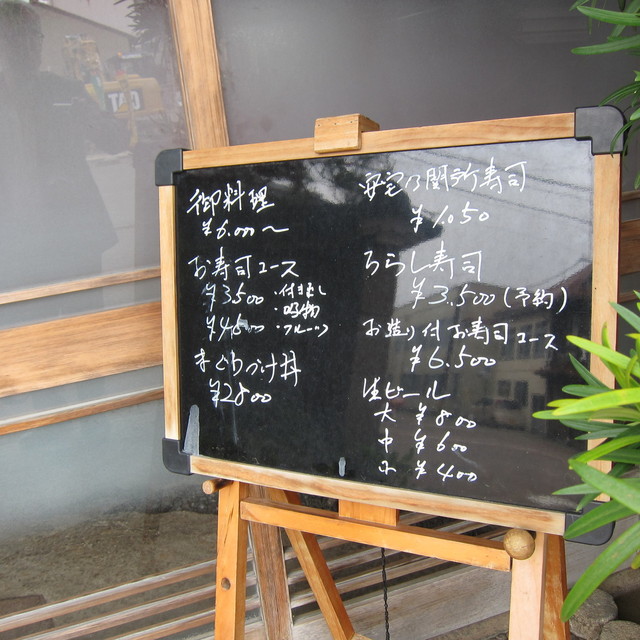 御料理
¥6.000〜
お寿司コース
¥3500 ・付き出し
・吸物
¥4500 ・フルーツ
まぐろづけ丼
¥2800
安宅乃関所寿司
¥1.050
ちらし寿司
¥3.500(予約)
お造り付お寿司コース
¥6.500
生ビール
大 ¥800
中 ¥600
小 ¥400